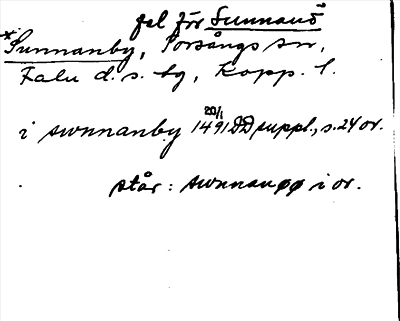 fel för Sunnanö
*Sunnanby, Torsångs sn,
Falu d. s. bg, Kopp. l.
20/1
i swnnanby 1491 DD suppl., s. 24 or.
står: swnnanøø i or.